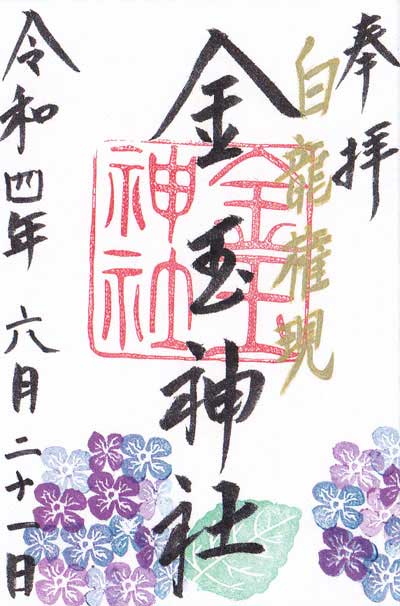 奉拝
白龍権現
金玉神社
金玉神社
令和四年 六月二十一日